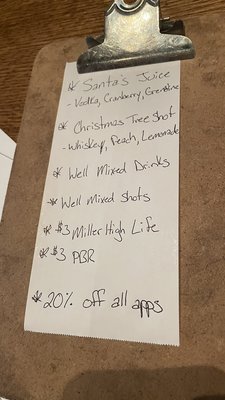 * Santa's Juice
- Vodka, Cranberry, Grenadine
* Christmas Tree Shot
- Whiskey, Peach, Lemonade
* Well Mixed Drinks
* Well Mixed Shots
* $3 Miller High Life
* $3 PBR
* 20% off all apps